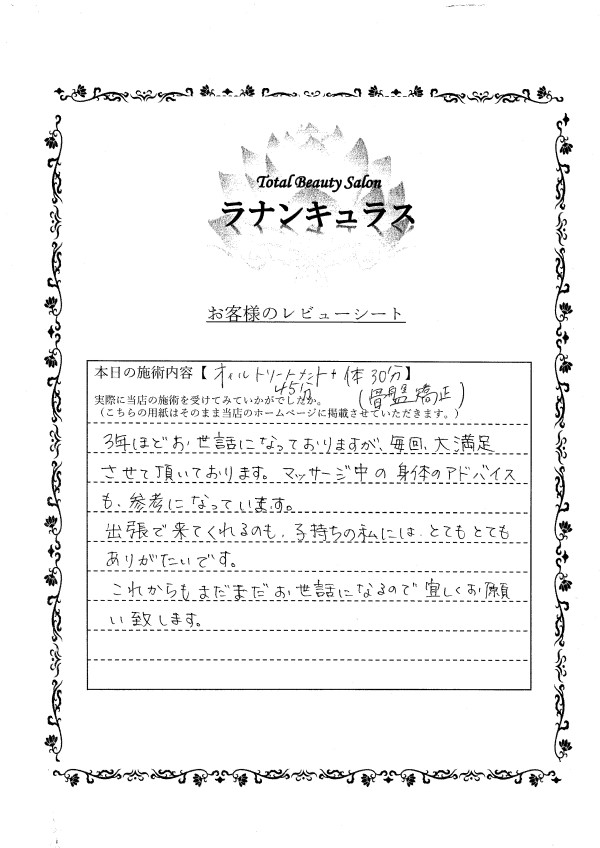 Total Beauty Salon
ラナンキュラス
お客様のレビューシート
本日の施術内容【オイルトリートメント+体30分】
45分 (骨盤矯正)
実際に当店の施術を受けてみていかがでしたか。
(こちらの用紙はそのまま当店のホームページに掲載させていただきます。)
3年ほどお世話になっておりますが、毎回、大満足
させて頂いております。マッサージ中の身体のアドバイス
も、参考になっています。
出張で来てくれるのも、子持ちの私には、とてもとても
ありがたいです。
これからもまだまだお世話になるので宜しくお願
い致します。